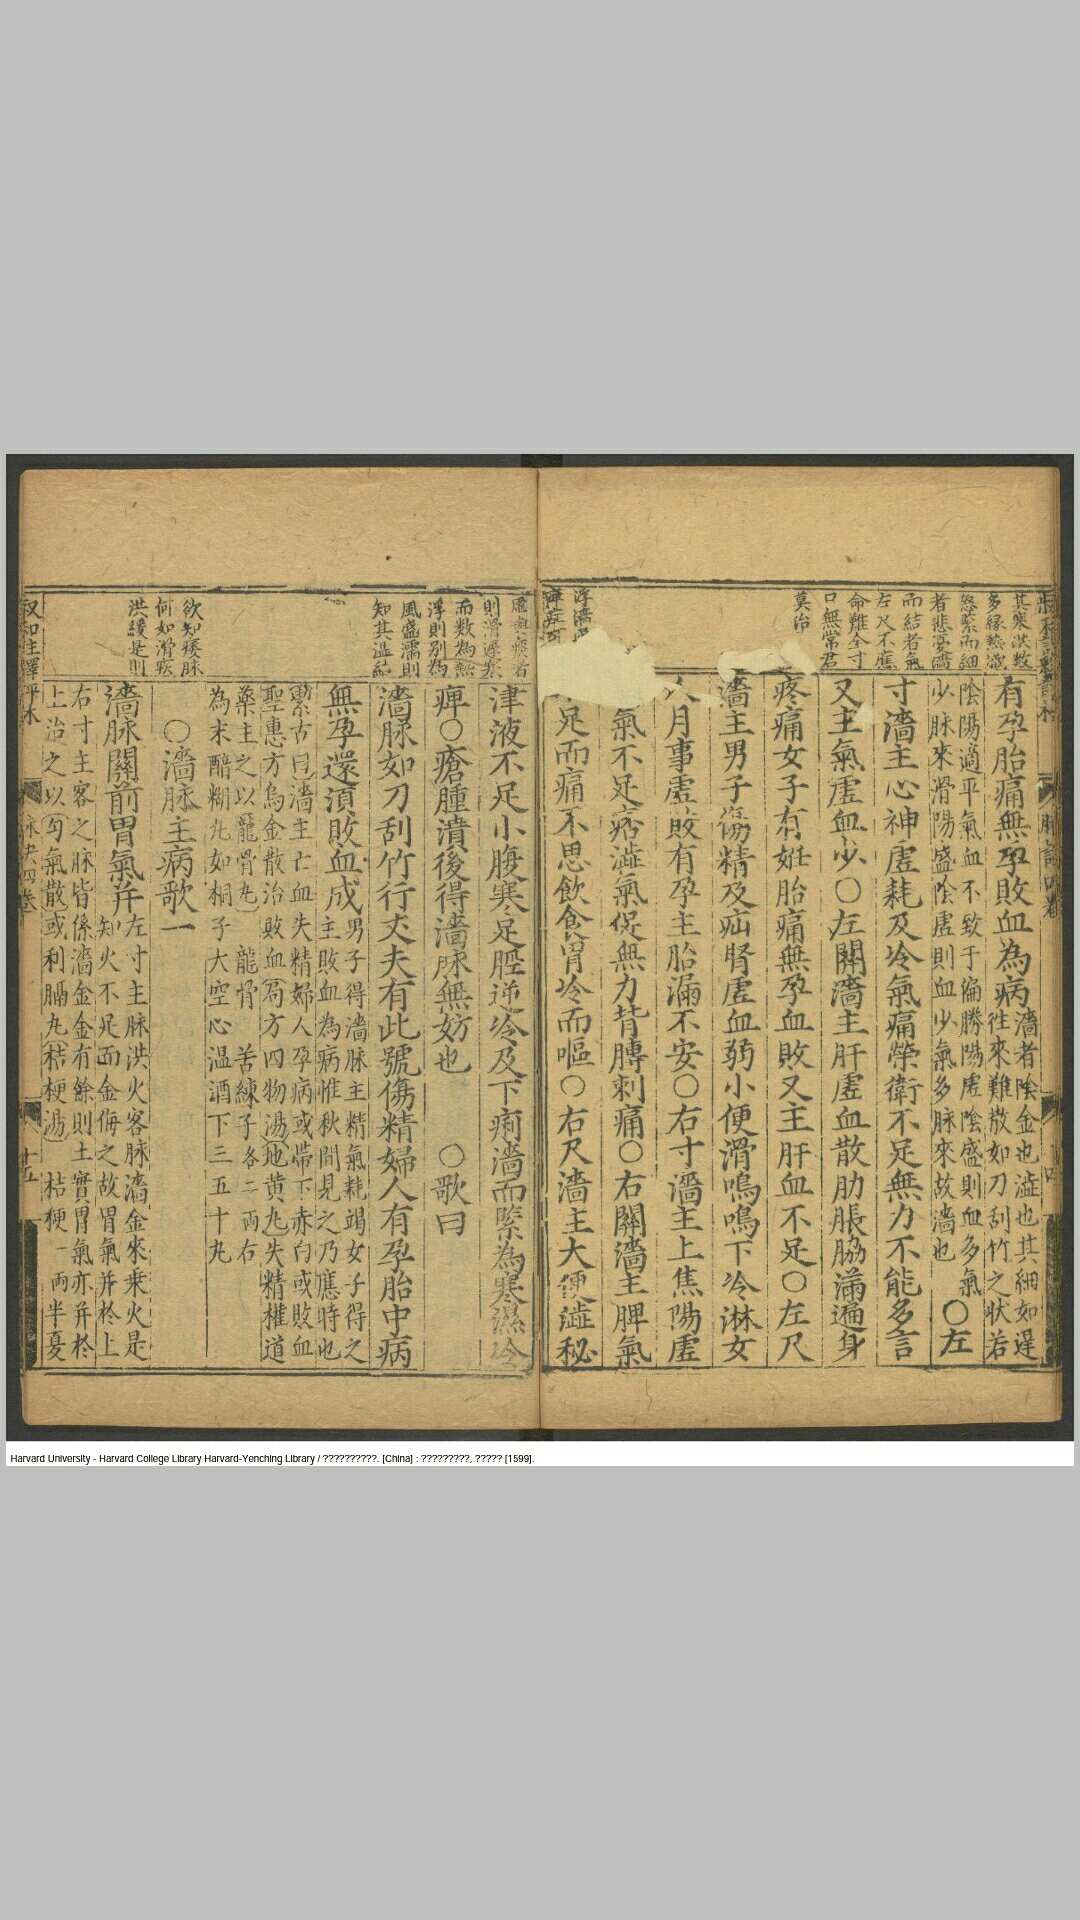 其寒洪數
而結者氣
左尺不應
命難全寸
口無常君
莫治
有孕胎痛無孕敗血為病
濇者陰金也澁也其細如遲
徃來難散如刀刮竹之狀若
陰陽適平氣血不致于偏勝陽虗陰盛則血多氣
少脉來滑陽盛陰虗則血少氣多脉來故濇也
〇左
寸濇主心神虗耗及冷氣痛榮衛不足無力不能多言
又主氣虗血少〇左關濇主肝虗血散肋脹脇滿遍身
疼痛女子有姙胎痛無孕血敗又主肝血不足〇左尺
濇主男子傷精及疝腎虗血弱小便滑鳴鳴下冷淋女
人月事虗敗有孕主胎漏不安〇右寸濇主上焦陽虗
氣不足痞澁氣促無力背膊刺痛〇右關濇主脾氣
足而痛不思飲食胃冷而嘔〇右尺濇主大便澁秘
則滑遲寒
浮則別為
風盛濡則
知其溫結
欲知痰脉
何如滑疾
洪緩是則
津液不足小腹寒足脛逆冷及下痢濇而緊為寒濕冷
痺〇瘡腫潰後得濇脉無妨也
〇歌曰
濇脉如刀刮竹行丈夫有此號傷精婦人有孕胎中病
無孕還須敗血成
男子得濇脉主精氣耗竭女子得之
主敗血為病惟秋間見之乃應時也
潔古曰濇主亡血失精婦人孕病或帶下赤白或敗血
聖惠方烏金散治敗血局方四物湯地黄丸失精權道
藥主之以龍骨丸
龍骨
苦練子各二兩右
為末醋糊丸如桐子大空心温酒下三五十丸
〇濇脉主病歌一
濇脉關前胃氣并
左寸主脉洪火客脉濇金來乗火是
知火不足而金侮之故胃氣并於上
右寸主客之脉皆係濇金金有餘則土實胃氣亦并於
上治之以勻氣散或利膈丸桔梗湯
桔梗一兩半夏
脉決四卷
十五
Harvard University - Harvard College Library Harvard-Yenching Library / ??????????. [China] : ?????????, ????? [1599].